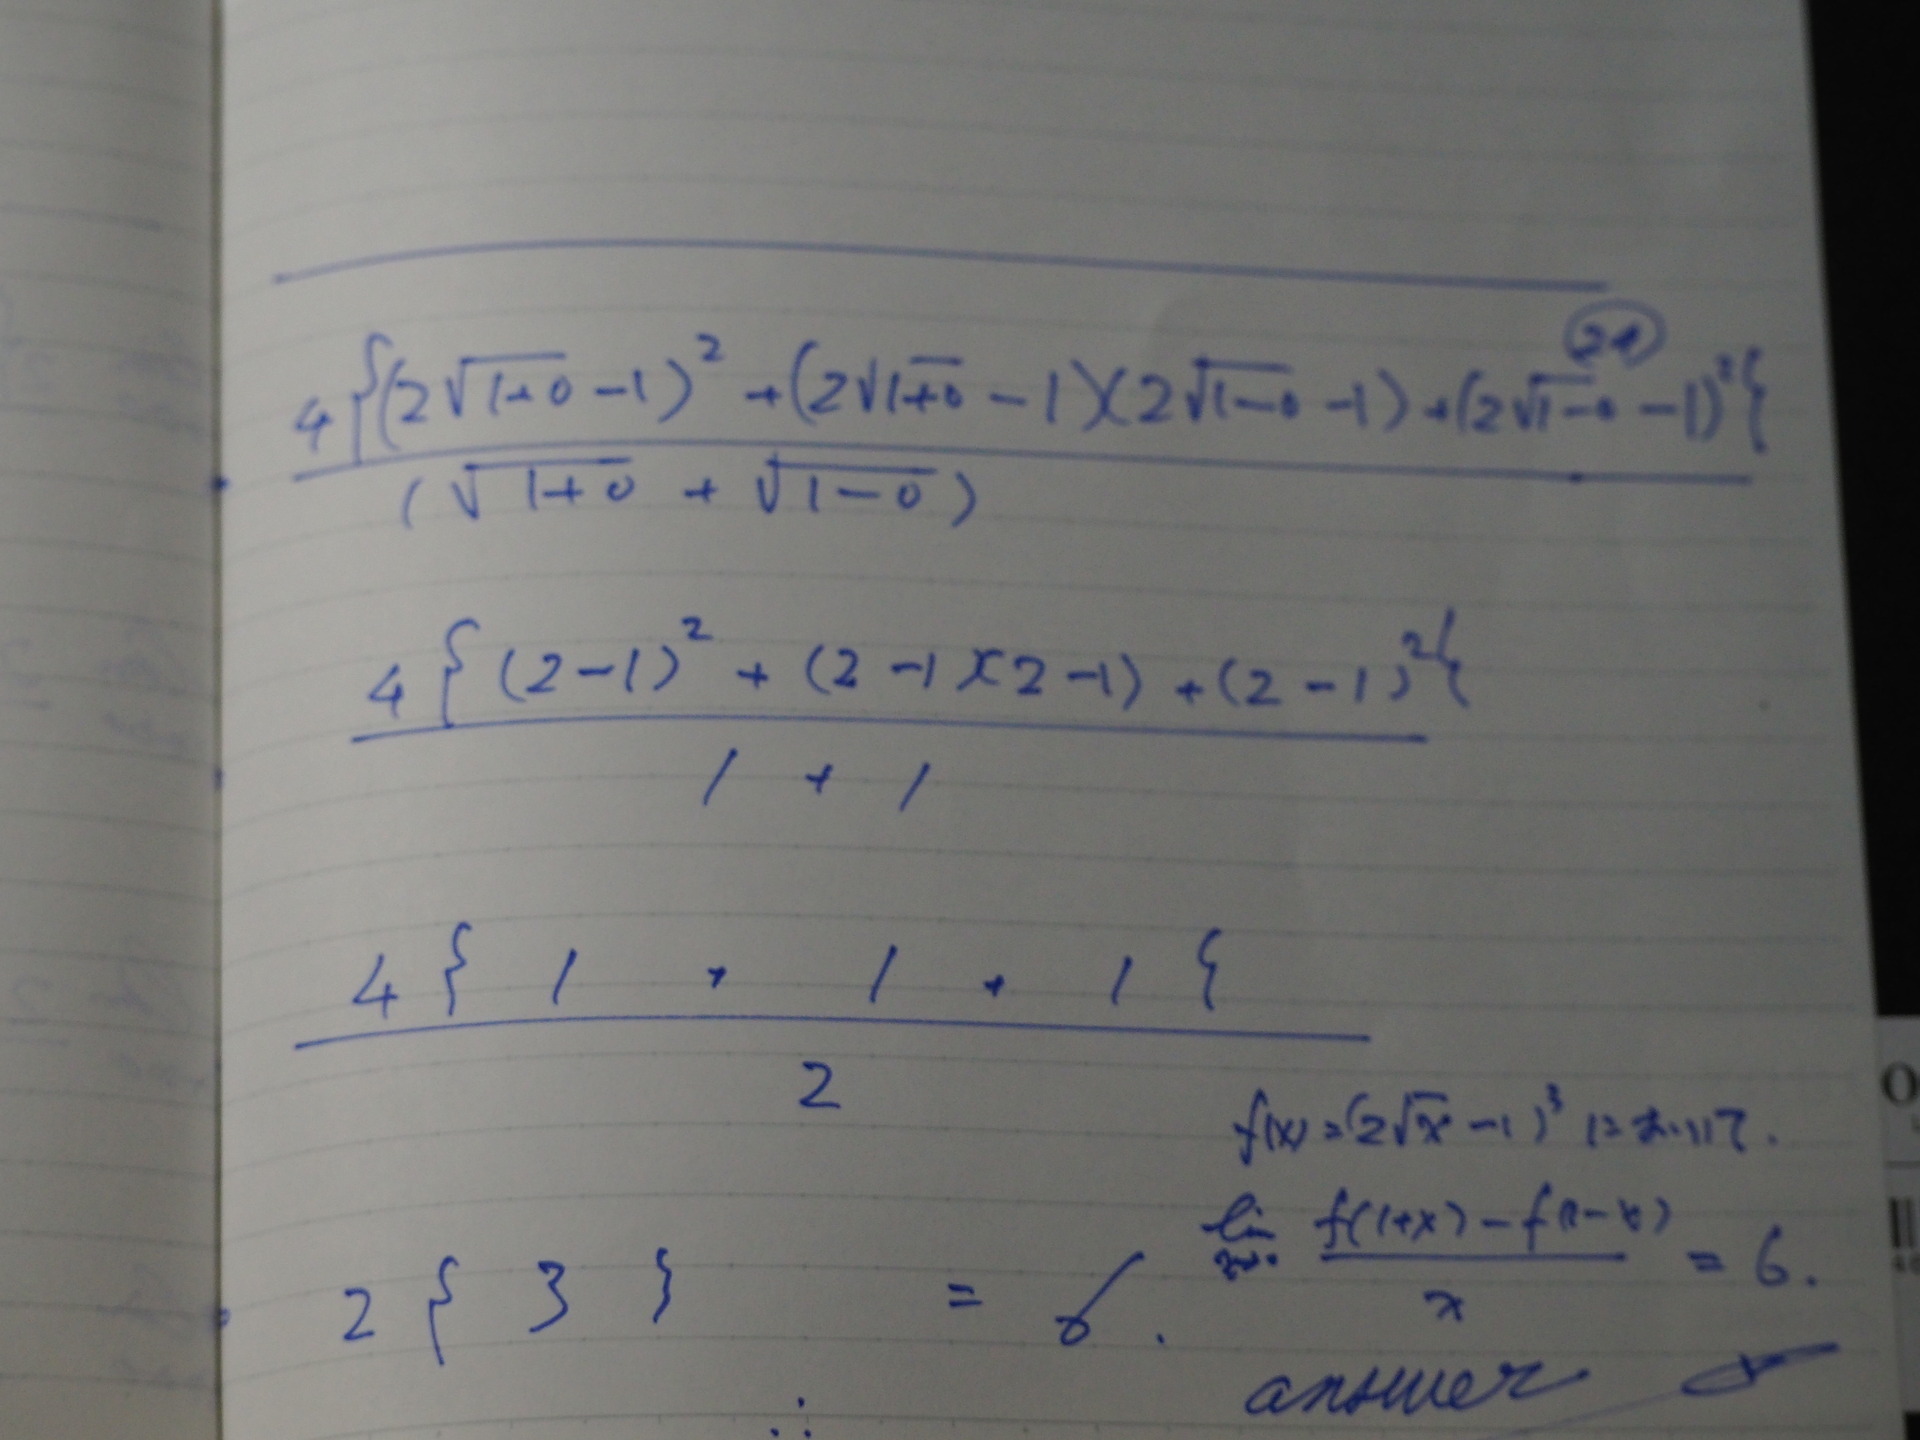 21
4{(2√1+0 -1)² +(2√1+0 -1)(2√1-0 -1)+(2√1-0 -1)²{
(√1+0 + √1-0)
4{(2-1)² + (2-1)(2-1)+(2-1)²{
1 + 1
4{ 1 + 1 + 1 {
2
f(x)=(2√x -1)³
lim f(1+x)-f(1-x) = 6.
x
2{ 3 } = 6.
answer
∴